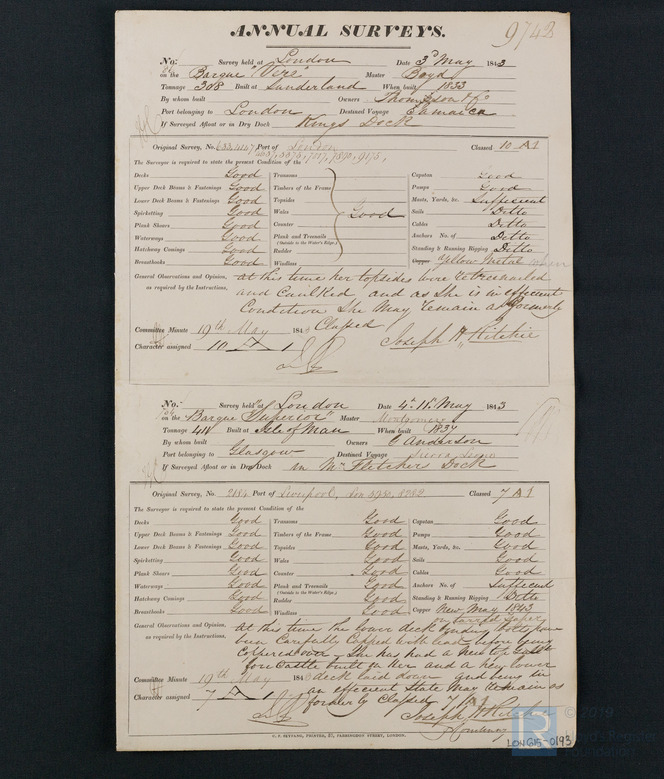 ANNUAL SURVEYS.
9742
No. Survey held at London Date 3d May 1843
on the Barque "Vere" Master Boyd
Tonnage 308 Built at Sunderland When built 1833
By whom built Owners Thompson & Co
Port belonging to London Destined Voyage Jamaica
If Surveyed Afloat or in Dry Dock Kings Dock
Original Survey, No. Port of London Classed 10 A 1
7870, 9175,
The Surveyor is required to state the present Condition of the
Decks Good Transoms Capstan Good
Upper Deck Beams & Fastenings Good Timbers of the Frame Pumps Good
Lower Deck Beams & Fastenings Good Topsides Masts, Yards, &c. Sufficient
Spirketting Good Wales Good Sails Ditto
Plank Sheers Good Counter Cables Ditto
Waterways Good Plank and Treenails (Outside to the Water's Edge.) Anchors No. of Ditto
Hatchway Comings Good Rudder Standing & Running Rigging Ditto
Breasthooks Good Windlass Copper Yellow Metal
General Observations and Opinion, as required by the Instructions, At this time her topsides were retreenailed
and Caulked and as she is in efficient
Condition She May remain as formerly
Classed
Committee Minute 19th May 184
Joseph H Ritchie
Character assigned 10 A 1
No. Survey held at London Date 4 & 11 May 1843
on the Barque "Superior" Master Montgomery
Tonnage 414 Built at Isle of Man When built 1834
By whom built Owners C Anderson
Port belonging to Glasgow Destined Voyage Sierra Leone
If Surveyed Afloat or in Dry Dock in Mr Fletchers Dock
Original Survey, No. 2184 Port of Liverpool, Lon Classed 7 A 1
The Surveyor is required to state the present Condition of the
Decks Good Transoms Good Capstan Good
Upper Deck Beams & Fastenings Good Timbers of the Frame Good Pumps Good
Lower Deck Beams & Fastenings Good Topsides Good Masts, Yards, &c. Good
Spirketting Good Wales Good Sails Good
Plank Sheers Good Counter Good Cables Good
Waterways Good Plank and Treenails (Outside to the Water's Edge.) Good Anchors No. of Sufficient
Hatchway Comings Good Rudder Good Standing & Running Rigging Ditto
Breasthooks Good Windlass Good Copper New May 1843
on tarred paper
General Observations and Opinion, as required by the Instructions, At this time the lower deck ends have
been Carefully Capped with lead before being
Coppered over. She has had a New top Gallt
fore Castle built on her and a new lower
deck laid down and being in
an efficient State May remain as
formerly Classed 7 A 1
Committee Minute 19th May 184
Character assigned 7 A 1
Joseph H Ritchie
P. Courtenay
C. F. SEYFANG, PRINTER, 57, FARRINGDON STREET, LONDON.
LON615-0193
© 2019
Lloyd's Register
Foundation